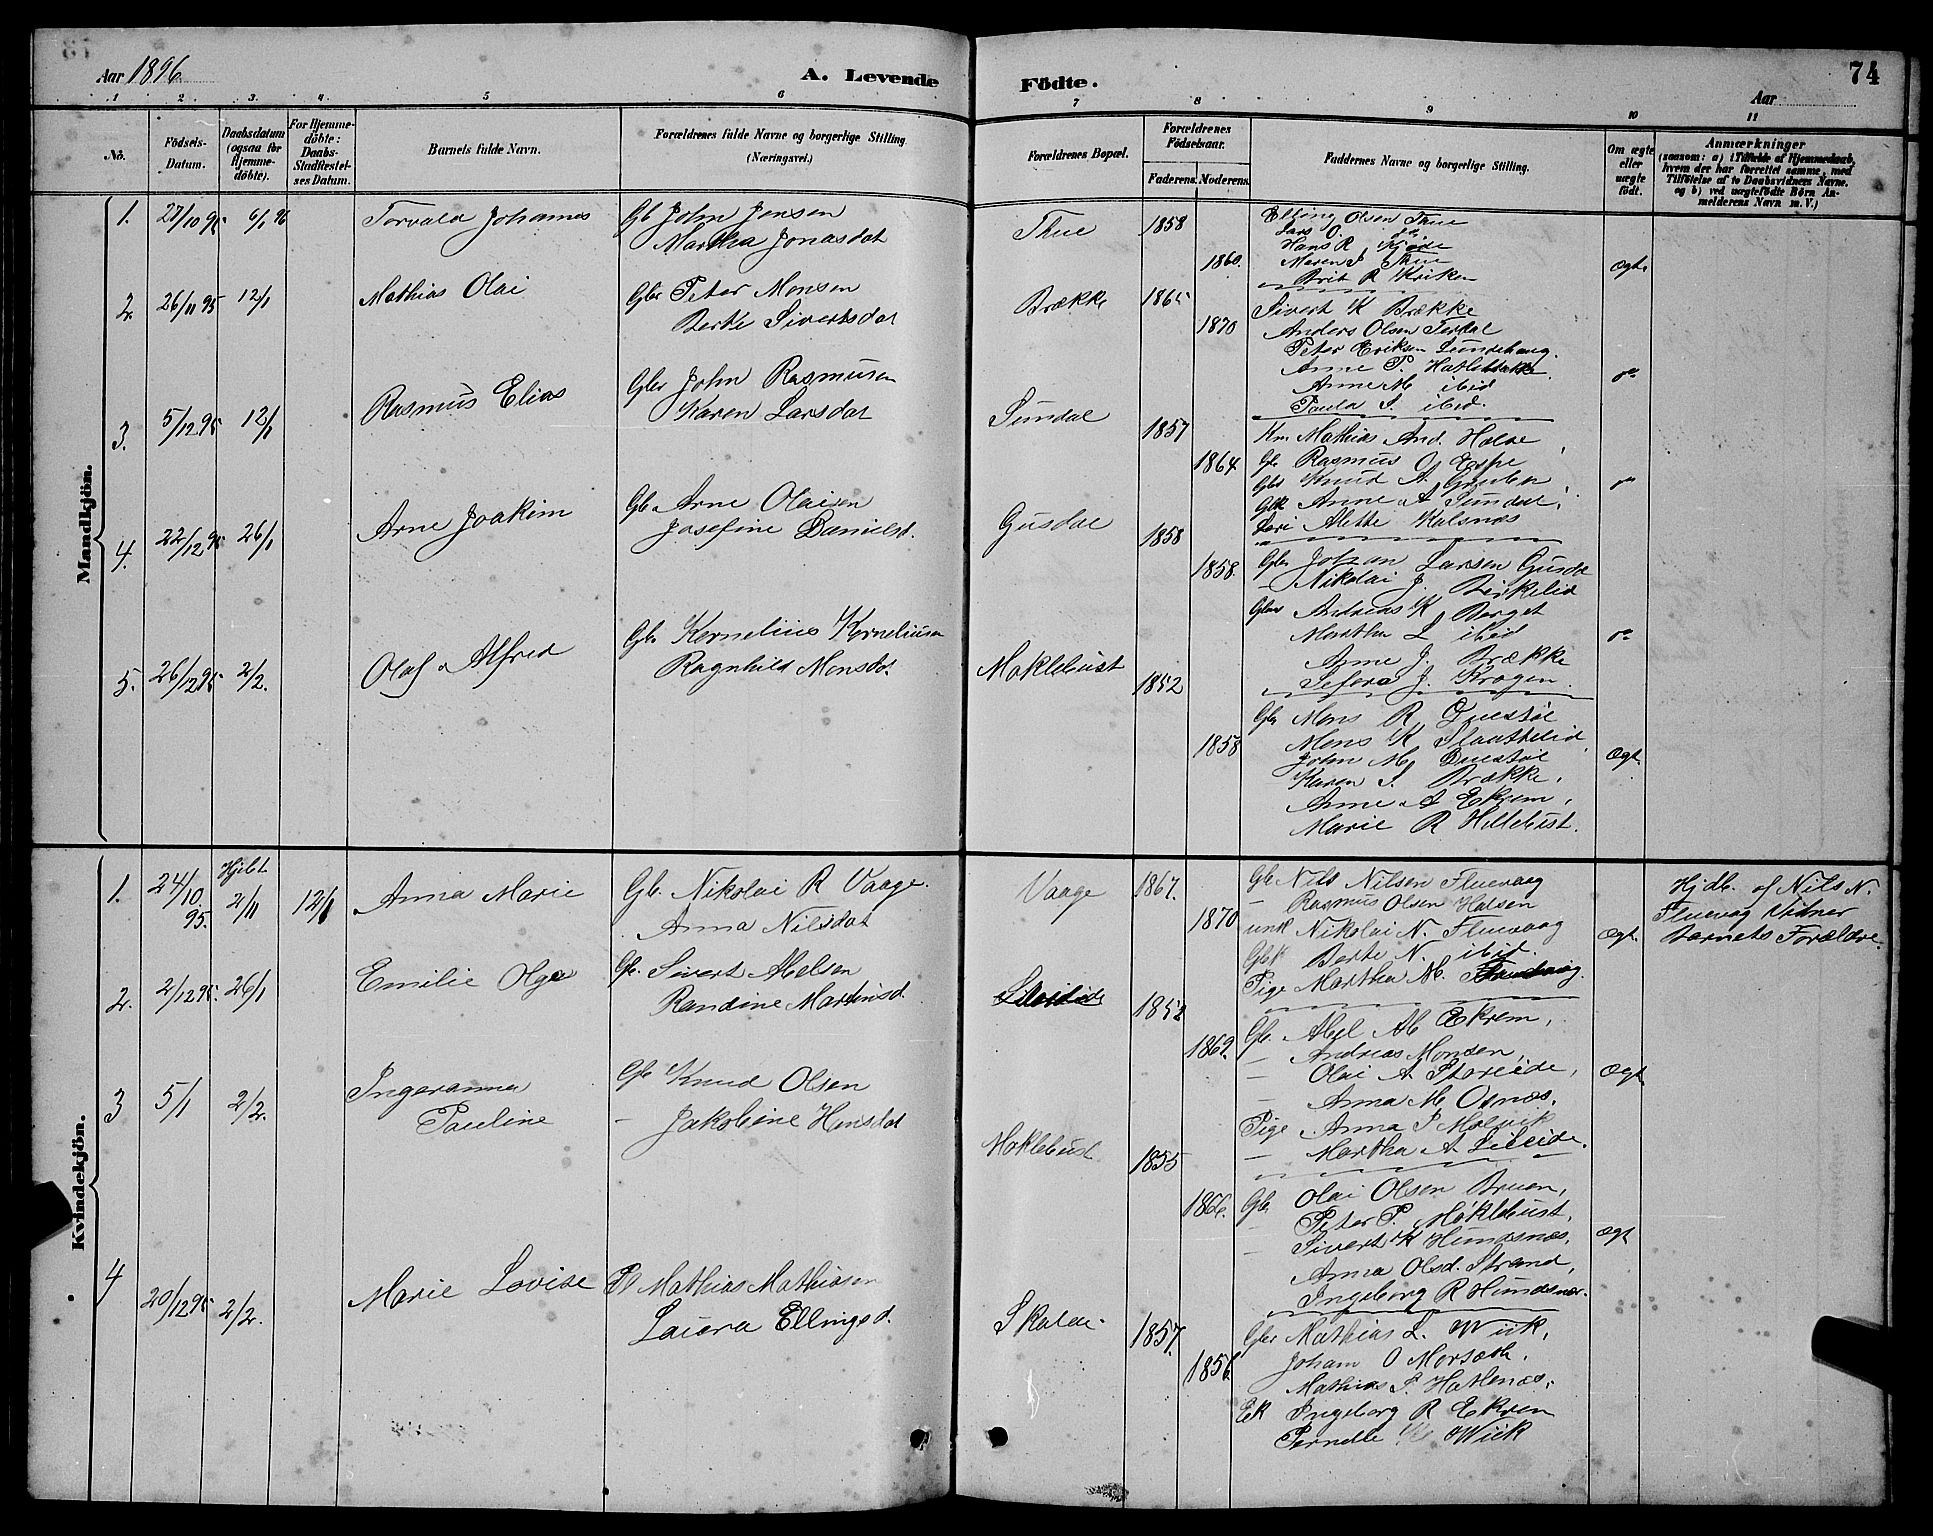 Aar 1896
A. Levende Födte.
74
Aar
1 2. 3. 4. 5 6 7 8 9 10 11
No.
Födsels-Datum.
Daabsdatum (ogsaa for Hjemme-döbte).
For Hjemme-döbte: Daabs-Stadfæstel-ses Datum.
Barnets fulde Navn.
Forældrenes fulde Navne og borgerlige Stilling
(Næringsvei.)
Forældrenes Bopæl.
Forældrenes Födselsaar.
Faderens. Moderens.
Faddernes Navne og borgerlige Stilling.
Om ægte eller uægte födt.
Anmærkninger
(saasom: a) i Tilfælde af Hjemmedaab,
hvem der har forrettet samme, med
Tilföielse af to Daabsvidners Navne.
og b) ved uægtefödte Börn An-
melderens Navn m. V.)
Mandkjön.
1. 27/10 95 6/1 96 Torvald Johannes Gb John Jensen
Martha Jonasdat
Thue 1858
1860.
Elling Olsen Thue
Lars O. do
Hans R Kjøde
Maren S Thue
Brit R Kriken
Ægt.
2. 26/11 95 12/1 Mathias Olai Gbr Peter Monsen
Berte Sivertsdat
Brække 1865
1870
Sivert K Brække
Anders Olsen Terdal
Peter Eriksen Lundehaug.
Anne P.
Anne M ibid
Paula S. ibid.
do
3. 5/12 95 12/1 Rasmus Elias Gbr John Rasmusen
Karen Larsdat
Sundal 1857
1864
Km Mathias And. Holde
Gb Rasmus O. Espe
Gbr Knud A.
Gbk Anne A Sundal,
Alette Kalsnes
do
4. 22/12 95 26/1 Arne Joakim Gb. Arne Olaisen
Josefine Danielsd.
Gusdal 1858
1858.
Gbr Johan Larsen Gusdal
Nikolai J Birkelid
Gbr Andreas K Berget
Martha L ibid
Anne J. Brække
Sefora J. Krogen
do
5. 26/12 95 2/2. Olaf Alfred Gbr Kornelius Korneliusen
Ragnhild Monsdat.
Moklebust 1852
1858
Gbr Mons R Duestøl
Mons K Slaattelid
John M. Duestøl
Karen S. Brække,
Anne A Ekrem,
Marie R Hillebust.
Ægt.
Kvindekjön.
1. 24/10. 95. Hjdbt 2/11 12/1 Anna Marie Gb. Nikolai R Vaage.
Anna Nilsdat
Vaage 1867.
1870
Gb Nils Nilsen Fluevaag
– Rasmus Olsen Halsen
unk Nikolai N. Fluevaag
Gbk Berte N. ibid.
Pige Martha M.
Ægt.
Hjdb. af Nils N.
Fluevag Vidner
Barnets Forældre.
2. 2/12 95. 26/1 Emilie Olga Gb. Sivert Abelsen
Randine Martinsd.
1869.
Gb. Abel Ab Ekrem,
– Andreas Monsen,
– Olai A Storeide,
– Anna M Osnæs,
Pige Anna P Molvik
– Martha A Lileide.
Ægt
3 5/1 2/2. Ingeranna
Pauline
Gb Knud Olsen
– Jakobine Hansdat
Moklebust. 1855
1866.
Gb. Olai Olsen Bruen,
– Peter P. Moklebust,
– Sivert K Hundsnæs,
Anna Olsd. Strand,
Ingeborg R Hundsnæs.
Ægt
4 20/12 95 2/2. Marie Lovise Mathias Mathiasen
Laura Ellingsd.
Skaldе. 1857.
1856
Gbr Mathias L. Wiik,
Johan O Morsæth,
Mathias S. Hatlenæs,
Ek Ingeborg R Ekrem
Pernelle Wiik